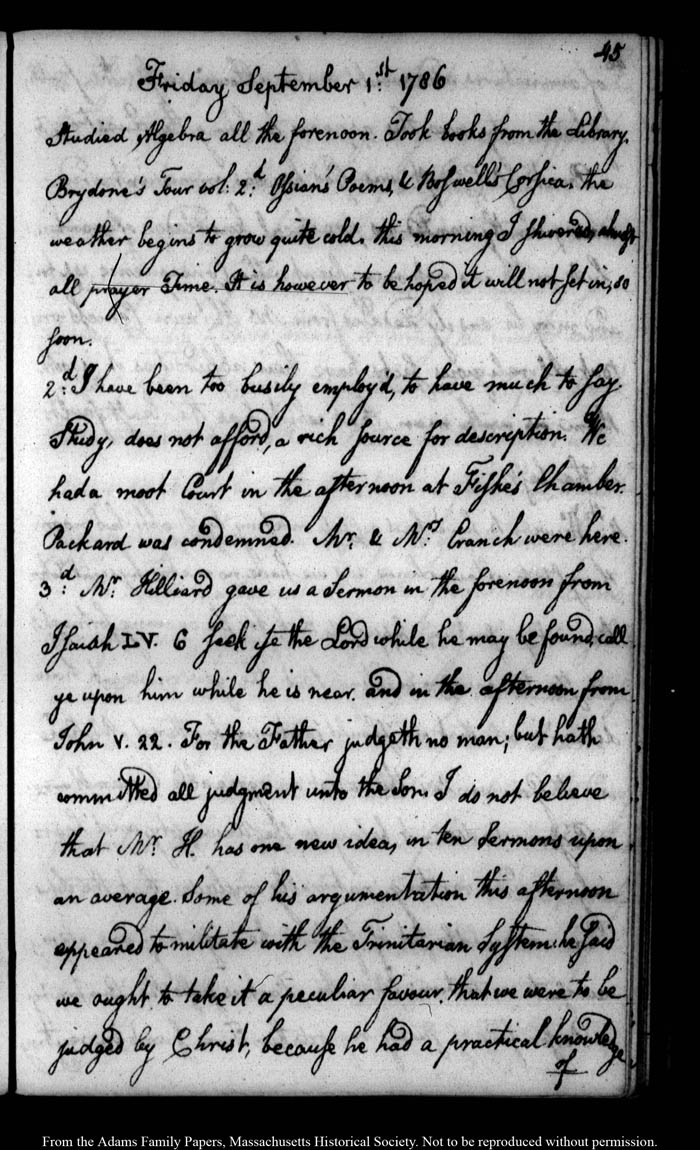 45
Friday September 1.st 1786
Studied Algebra all the forenoon. Took books from the Library.
Brydone's Tour vol: 2.d Ossian's Poems, & Boswell's Corsica. the
weather begins to grow quite cold. this morning I shivered, almost
all prayer Time. It is however to be hoped it will not set in, so
soon.
2.d I have been too busily employ'd, to have much to say.
Study, does not afford, a rich source for description. We
had a moot Court in the afternoon at Fiske's Chamber.
Packard was condemned. Mr. & Mrs. Cranch were here.
3.d Mr. Hilliard gave us a Sermon in the forenoon from
Isaiah LV. 6 seek ye the Lord while he may be found, call
ye upon him while he is near. and in the afternoon from
John V. 22. For the Father judgeth no man; but hath
committed all judgment unto the Son. I do not believe
that Mr. H. has one new idea, in ten Sermons upon
an average. Some of his argumentation this afternoon
appeared to militate with the Trinitarian System. he said
we ought to take it a peculiar favour, that we were to be
judged by Christ, because he had a practical knowledge
of
From the Adams Family Papers, Massachusetts Historical Society. Not to be reproduced without permission.